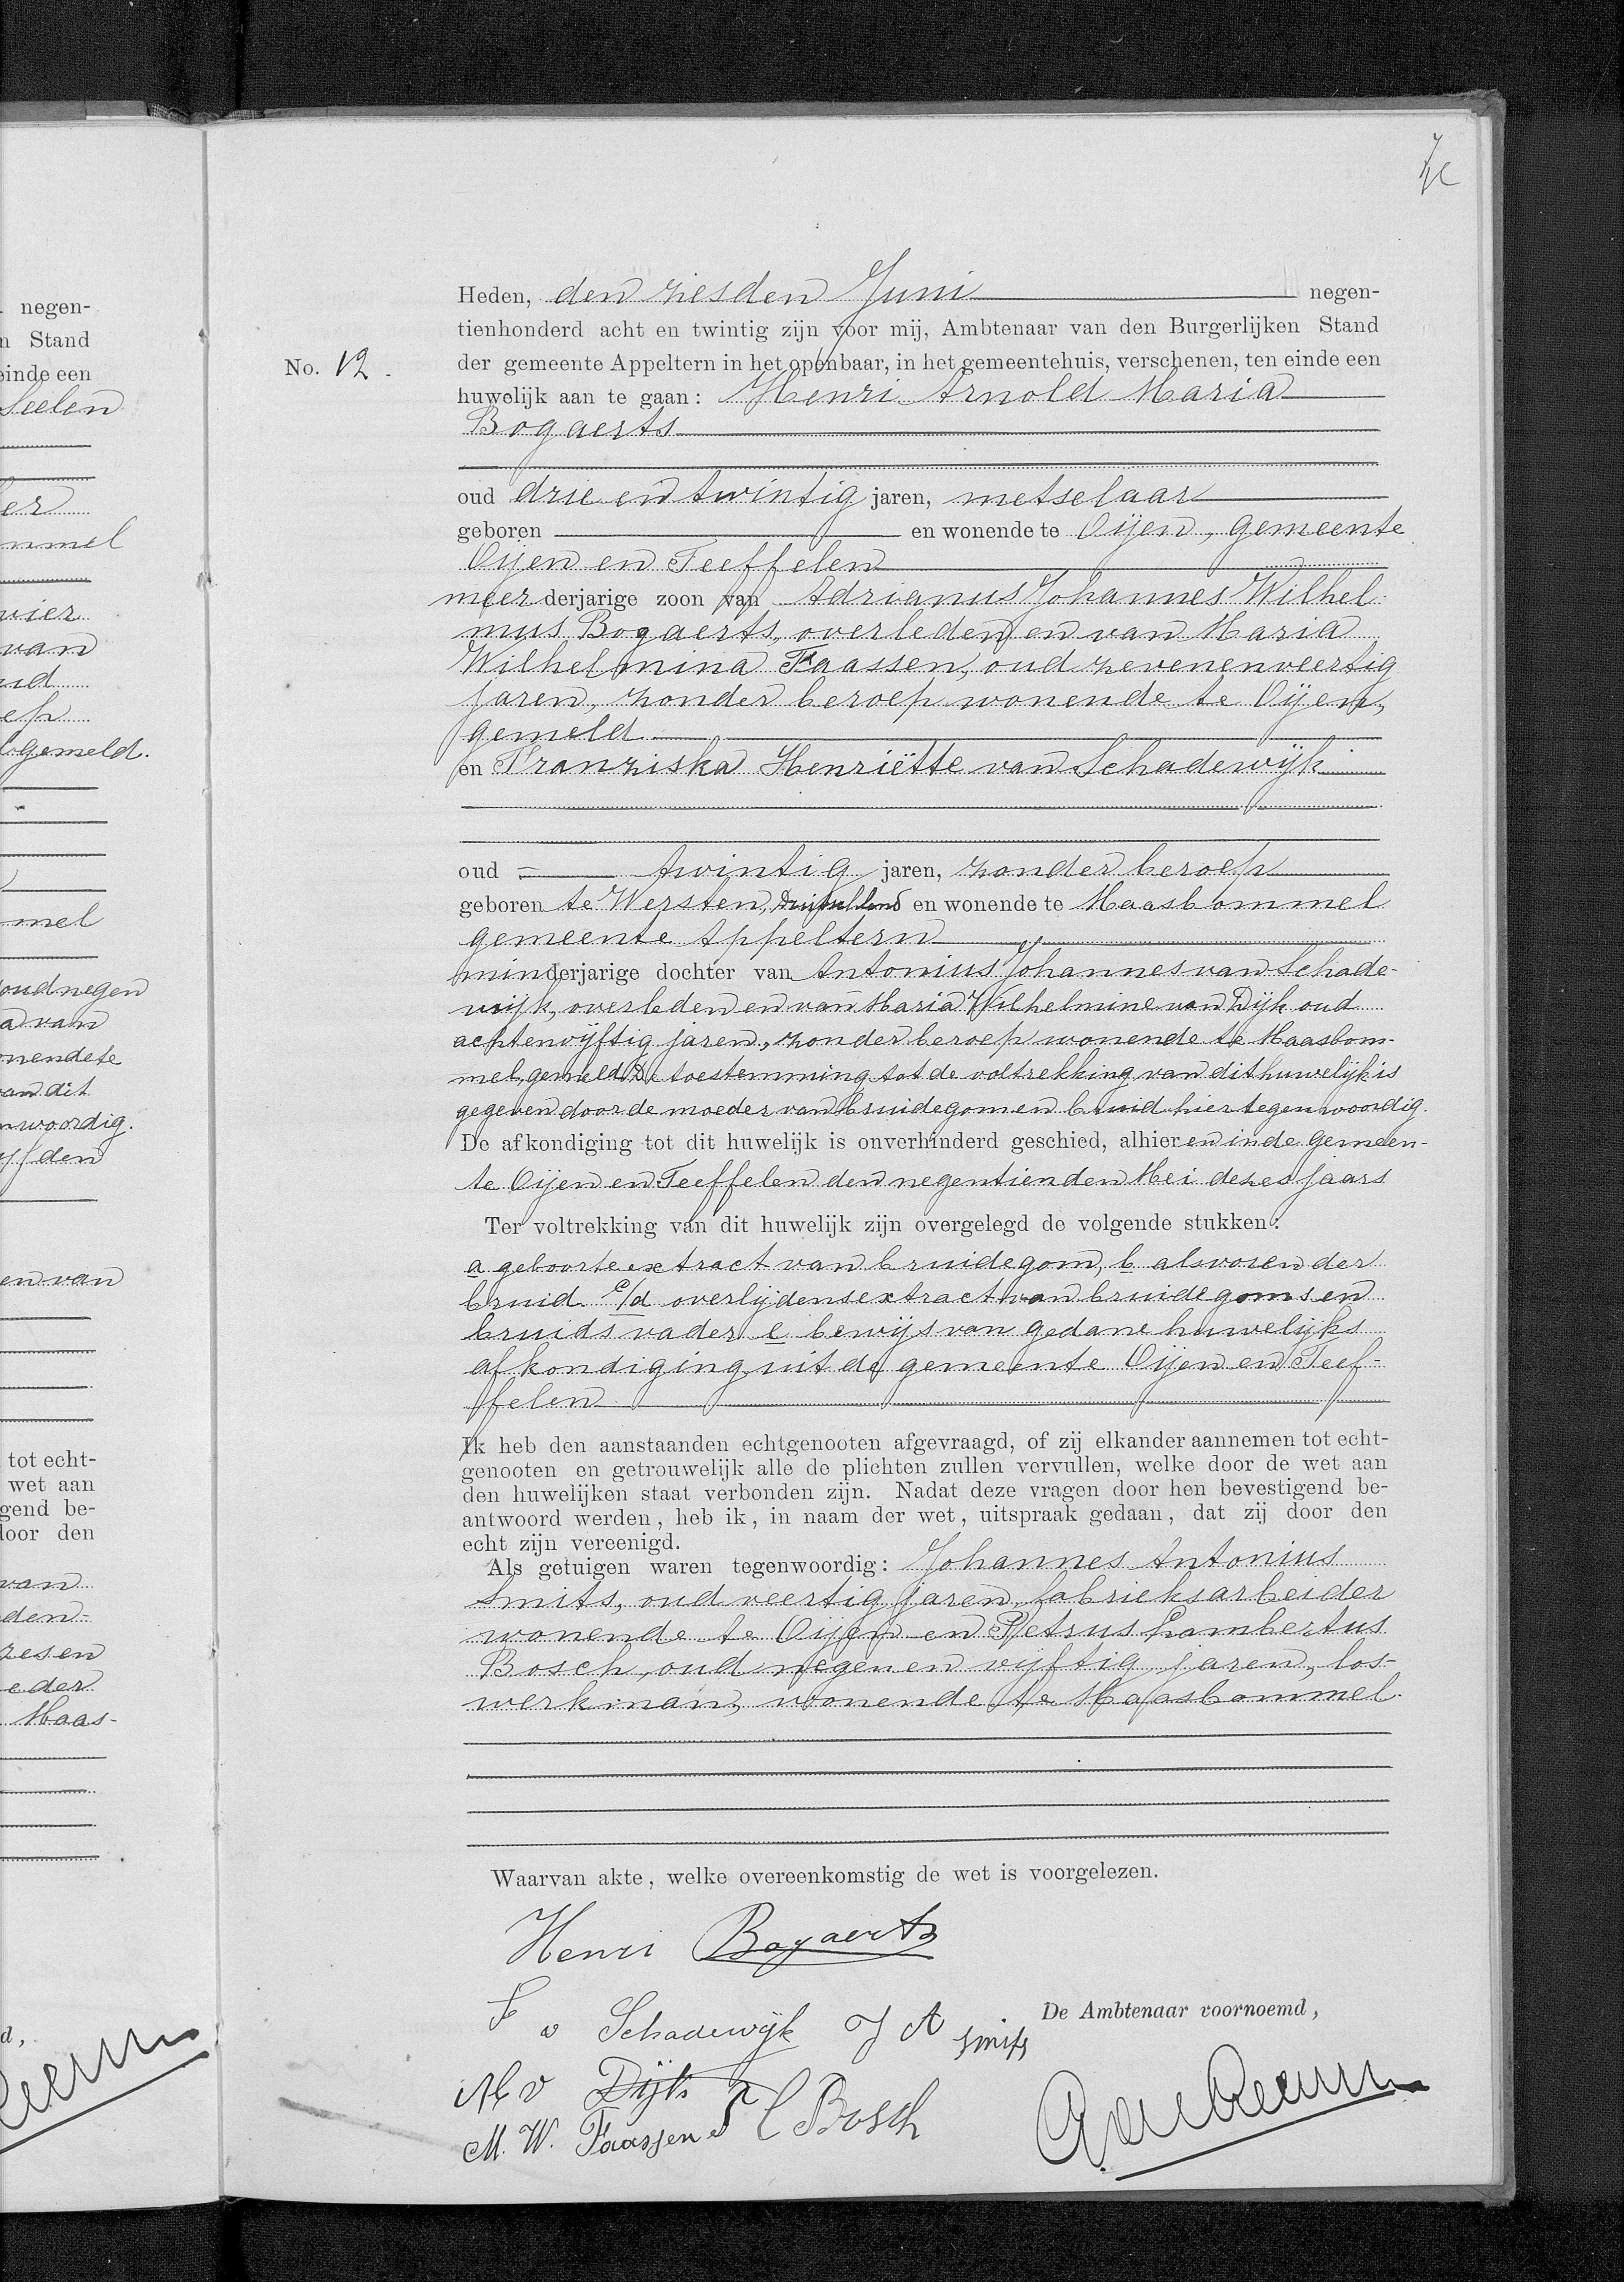 Heden, den zesden Juni negen-
tienhonderd acht en twintig zijn voor mij, Ambtenaar van den Burgerlijken Stand
No. 12. der gemeente Appeltern in het openbaar, in het gemeentehuis, verschenen, ten einde een
huwelijk aan te gaan: Henri Arnold Maria
Bogaerts
oud drie en twintig jaren, metselaar
geboren en wonende te Oijen, gemeente
Oijen en Teeffelen
meerderjarige zoon van Adrianus Johannes Wilhel
mus Bogaerts, overleden en van Maria
Wilhelmina Faassen, oud zevenenveertig
jaren, zonder beroep wonende te Oijen,
gemeld
en Franziska Henriëtte van Schadewijk
oud = twintig jaren, zonder beroep
geboren te Wersten, Duitschland en wonende te Maasbommel
gemeente Appeltern
minderjarige dochter van Antonius Johannes van Schade-
wijk, overleden en van Maria Wilhelmine van Dijk oud
achtenvijftig jaren, zonder beroep wonende te Maasbom-
mel, gemeld De toestemming tot de voltrekking van dit huwelijk is
gegeven door de moeder van bruidegom en bruid hier tegenwoordig.
De afkondiging tot dit huwelijk is onverhinderd geschied, alhier en in de gemeen-
te Oijen en Teeffelen den negentienden Mei dezes jaars
Ter voltrekking van dit huwelijk zijn overgelegd de volgende stukken:
a geboorte extract van bruidegom, b alsvoren der
bruid c/d overlijdensextract van bruidegoms en
bruids vader e bewijs van gedane huwelijks
afkondiging uit de gemeente Oijen en Teef-
felen
Ik heb den aanstaanden echtgenooten afgevraagd, of zij elkander aannemen tot echt-
genooten en getrouwelijk alle de plichten zullen vervullen, welke door de wet aan
den huwelijken staat verbonden zijn. Nadat deze vragen door hen bevestigend be-
antwoord werden, heb ik, in naam der wet, uitspraak gedaan, dat zij door den
echt zijn vereenigd.
Als getuigen waren tegenwoordig: Johannes Antonius
Smits, oud veertig jaren, fabrieksarbeider
wonende te Oijen en Petrus Lambertus
Bosch, oud negen en vijftig jaren, los-
werkman, wonende te Maasbommel.
Waarvan akte, welke overeenkomstig de wet is voorgelezen.
Henri Bogaerts
F v Schadewijk J A Smits
De Ambtenaar voornoemd,
M v Dijk
M. W. Faassen P L Bosch
negen-
n Stand
einde een
Seelen
er
mmel
vier
van
ep
gemeld.
mel
oud negen
a van
onende te
van dit
nwoordig.
den
en van
tot echt-
wet aan
gend be-
door den
van
den-
zesen
eder
Maas-
d,